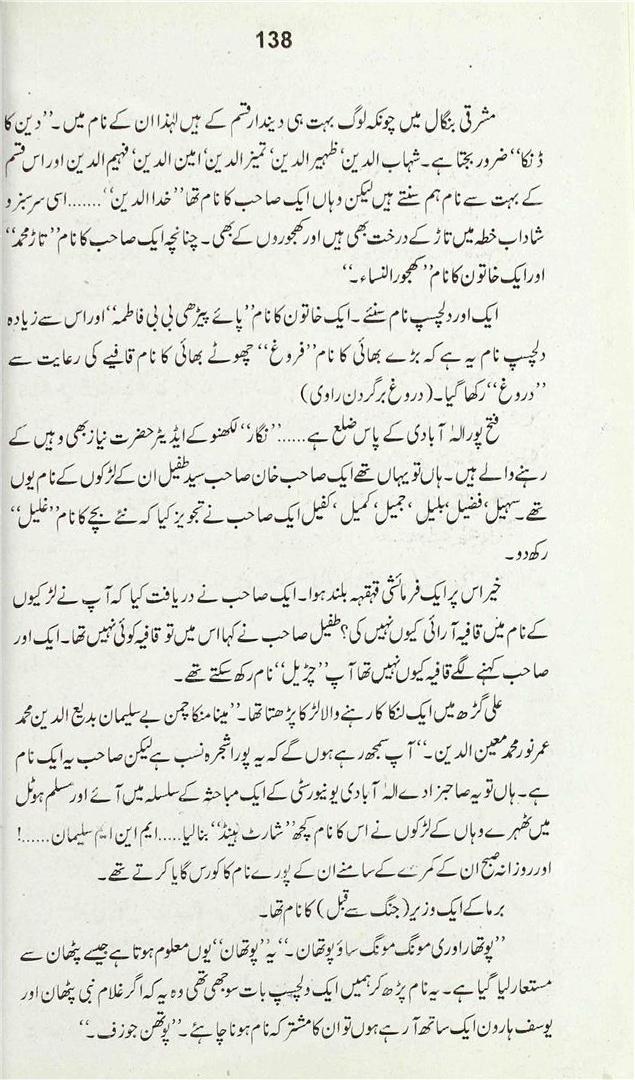 138
مشرقی بنگال میں چونکہ لوگ بہت ہی دیندار قسم کے ہیں لہٰذا ان کے نام میں۔ ’’دین کا
ڈنکا‘‘ ضرور بجتا ہے۔ شہاب الدین‘ ظہیر الدین‘ تمیز الدین‘ امین الدین‘ فہیم الدین اور اس قسم
کے بہت سے نام ہم سنتے ہیں لیکن وہاں ایک صاحب کا نام تھا ’’خدا الدین‘‘.......اسی سرسبز و
شاداب خطہ میں تاڑ کے درخت بھی ہیں اور کھجوروں کے بھی۔ چنانچہ ایک صاحب کا نام ’’تاڑ محمد‘‘
اور ایک خاتون کا نام ’’کھجور النساء۔‘‘
ایک اور دلچسپ نام سنئے۔ ایک خاتون کا نام ’’پائے پیڑھی بی بی فاطمہ‘‘ اور اس سے زیادہ
دلچسپ نام یہ ہے کہ بڑے بھائی کا نام ’’فروغ‘‘ چھوٹے بھائی کا نام قافیے کی رعایت سے
’’دروغ‘‘ رکھا گیا۔ (دروغ بر گردن راوی)
فتح پور الہٰ آبادی کے پاس ضلع ہے.....’’نگار‘‘ لکھنو کے ایڈیٹر حضرت نیاز بھی وہیں کے
رہنے والے ہیں۔ ہاں تو یہاں تھے ایک صاحب خان صاحب سید طفیل ان کے لڑکوں کے نام یوں
تھے۔ سہیل‘ فضیل‘ بلیل‘ جمیل‘ کمیل‘ کفیل ایک صاحب نے تجویز کیا کہ نئے بچے کا نام ’’غلیل‘‘
رکھ دو۔
خیر اس پر ایک فرمائشی قہقہہ بلند ہوا۔ ایک صاحب نے دریافت کیا کہ آپ نے لڑکیوں
کے نام میں قافیہ آرائی کیوں نہیں کی؟ طفیل صاحب نے کہا اس میں تو قافیہ کوئی نہیں تھا۔ ایک اور
صاحب کہنے لگے قافیہ کیوں نہیں تھا آپ ’’چڑیل‘‘ نام رکھ سکتے تھے۔
علی گڑھ میں ایک لنکا کا رہنے والا لڑکا پڑھتا تھا۔ ’’مینا منکا چمن بے سلیمان بدیع الدین محمد
عمر نور محمد معین الدین۔‘‘ آپ سمجھ رہے ہوں گے کہ یہ پورا شجرہ نسب ہے لیکن صاحب یہ ایک نام
ہے۔ ہاں تو یہ صاحبزادے الہٰ آبادی یونیورسٹی کے ایک مباحثہ کے سلسلہ میں آئے اور مسلم ہوٹل
میں ٹھہرے وہاں کے لڑکوں نے اس کا نام کچھ ’’شارٹ ہینڈ‘‘ بنا لیا.....ایم این ایم سلیمان......!
اور روزانہ صبح ان کے کمرے کے سامنے ان کے پورے نام کا کورس گایا کرتے تھے۔
برما کے ایک وزیر (جنگ سے قبل) کا نام تھا۔
’’پوتھار اوری مونگ مونگ ساؤ پوتھان۔‘‘ یہ ’’پوتھان‘‘ یوں معلوم ہوتا ہے جیسے پٹھان سے
مستعار لیا گیا ہے۔ یہ نام پڑھ کر ہمیں ایک دلچسپ بات سوجھی تھی وہ یہ کہ اگر غلام نبی پٹھان اور
یوسف ہارون ایک ساتھ آ رہے ہوں تو ان کا مشترکہ نام ہونا چاہئے۔ ’’پوتھن جوزف۔‘‘